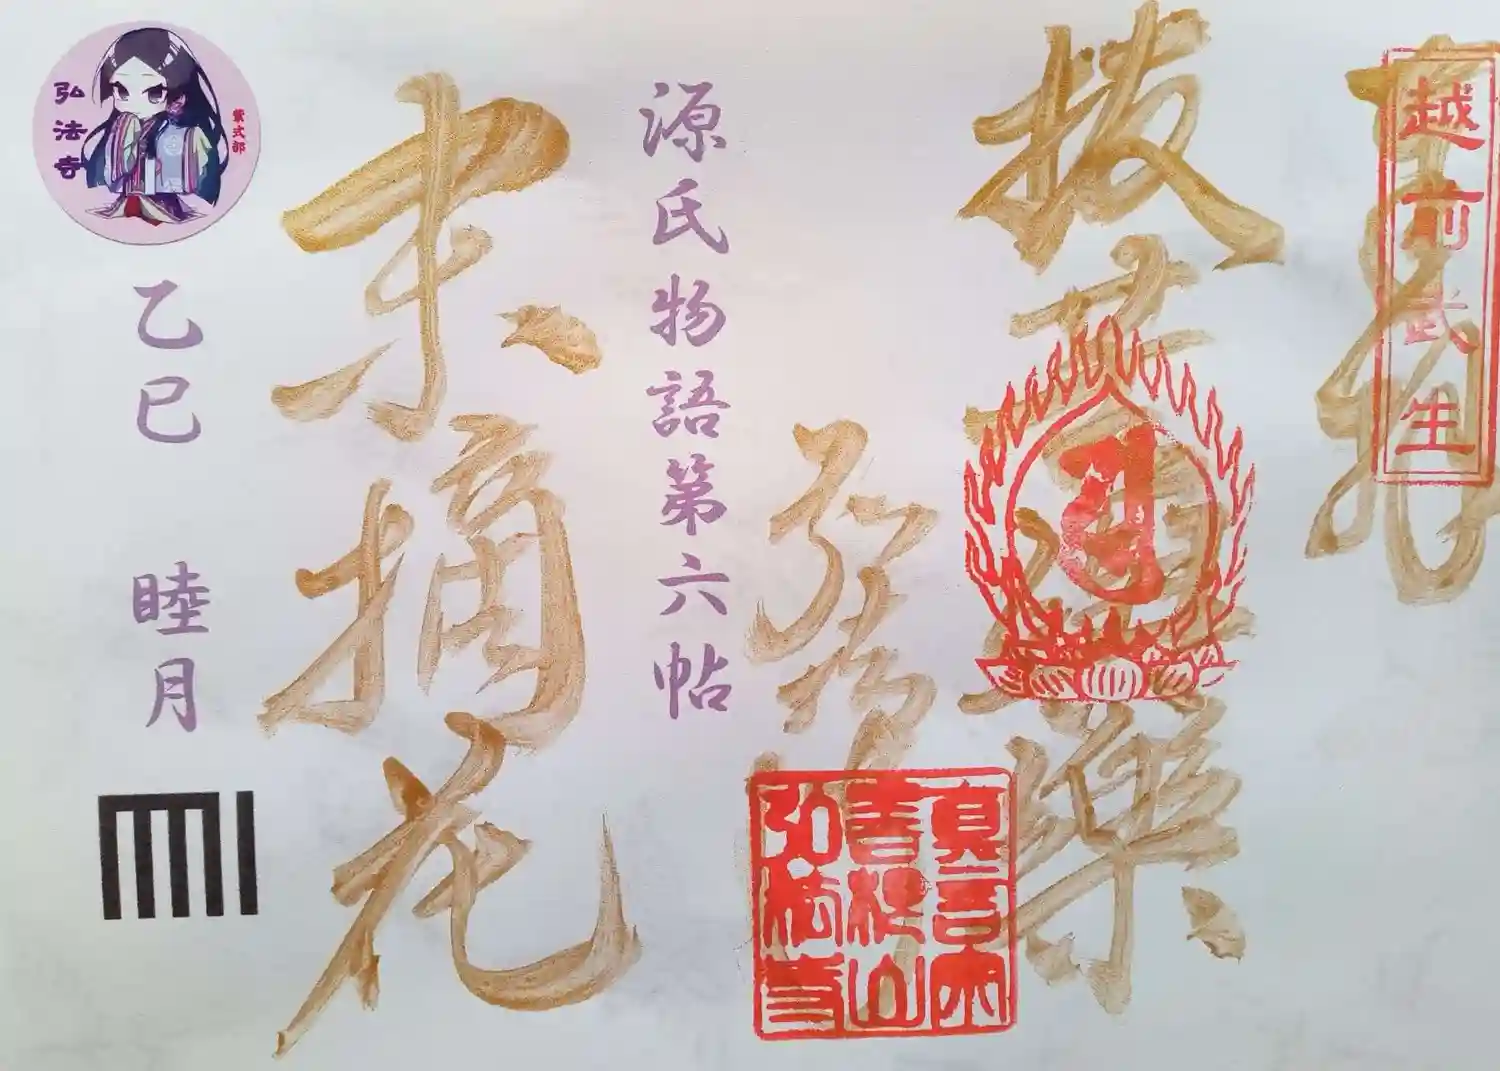 奉拝
越前武生
抜苦與樂
弘法寺
真言宗
弘法寺
源氏物語第六帖
末摘花
紫式部
弘法寺
乙巳 睦月